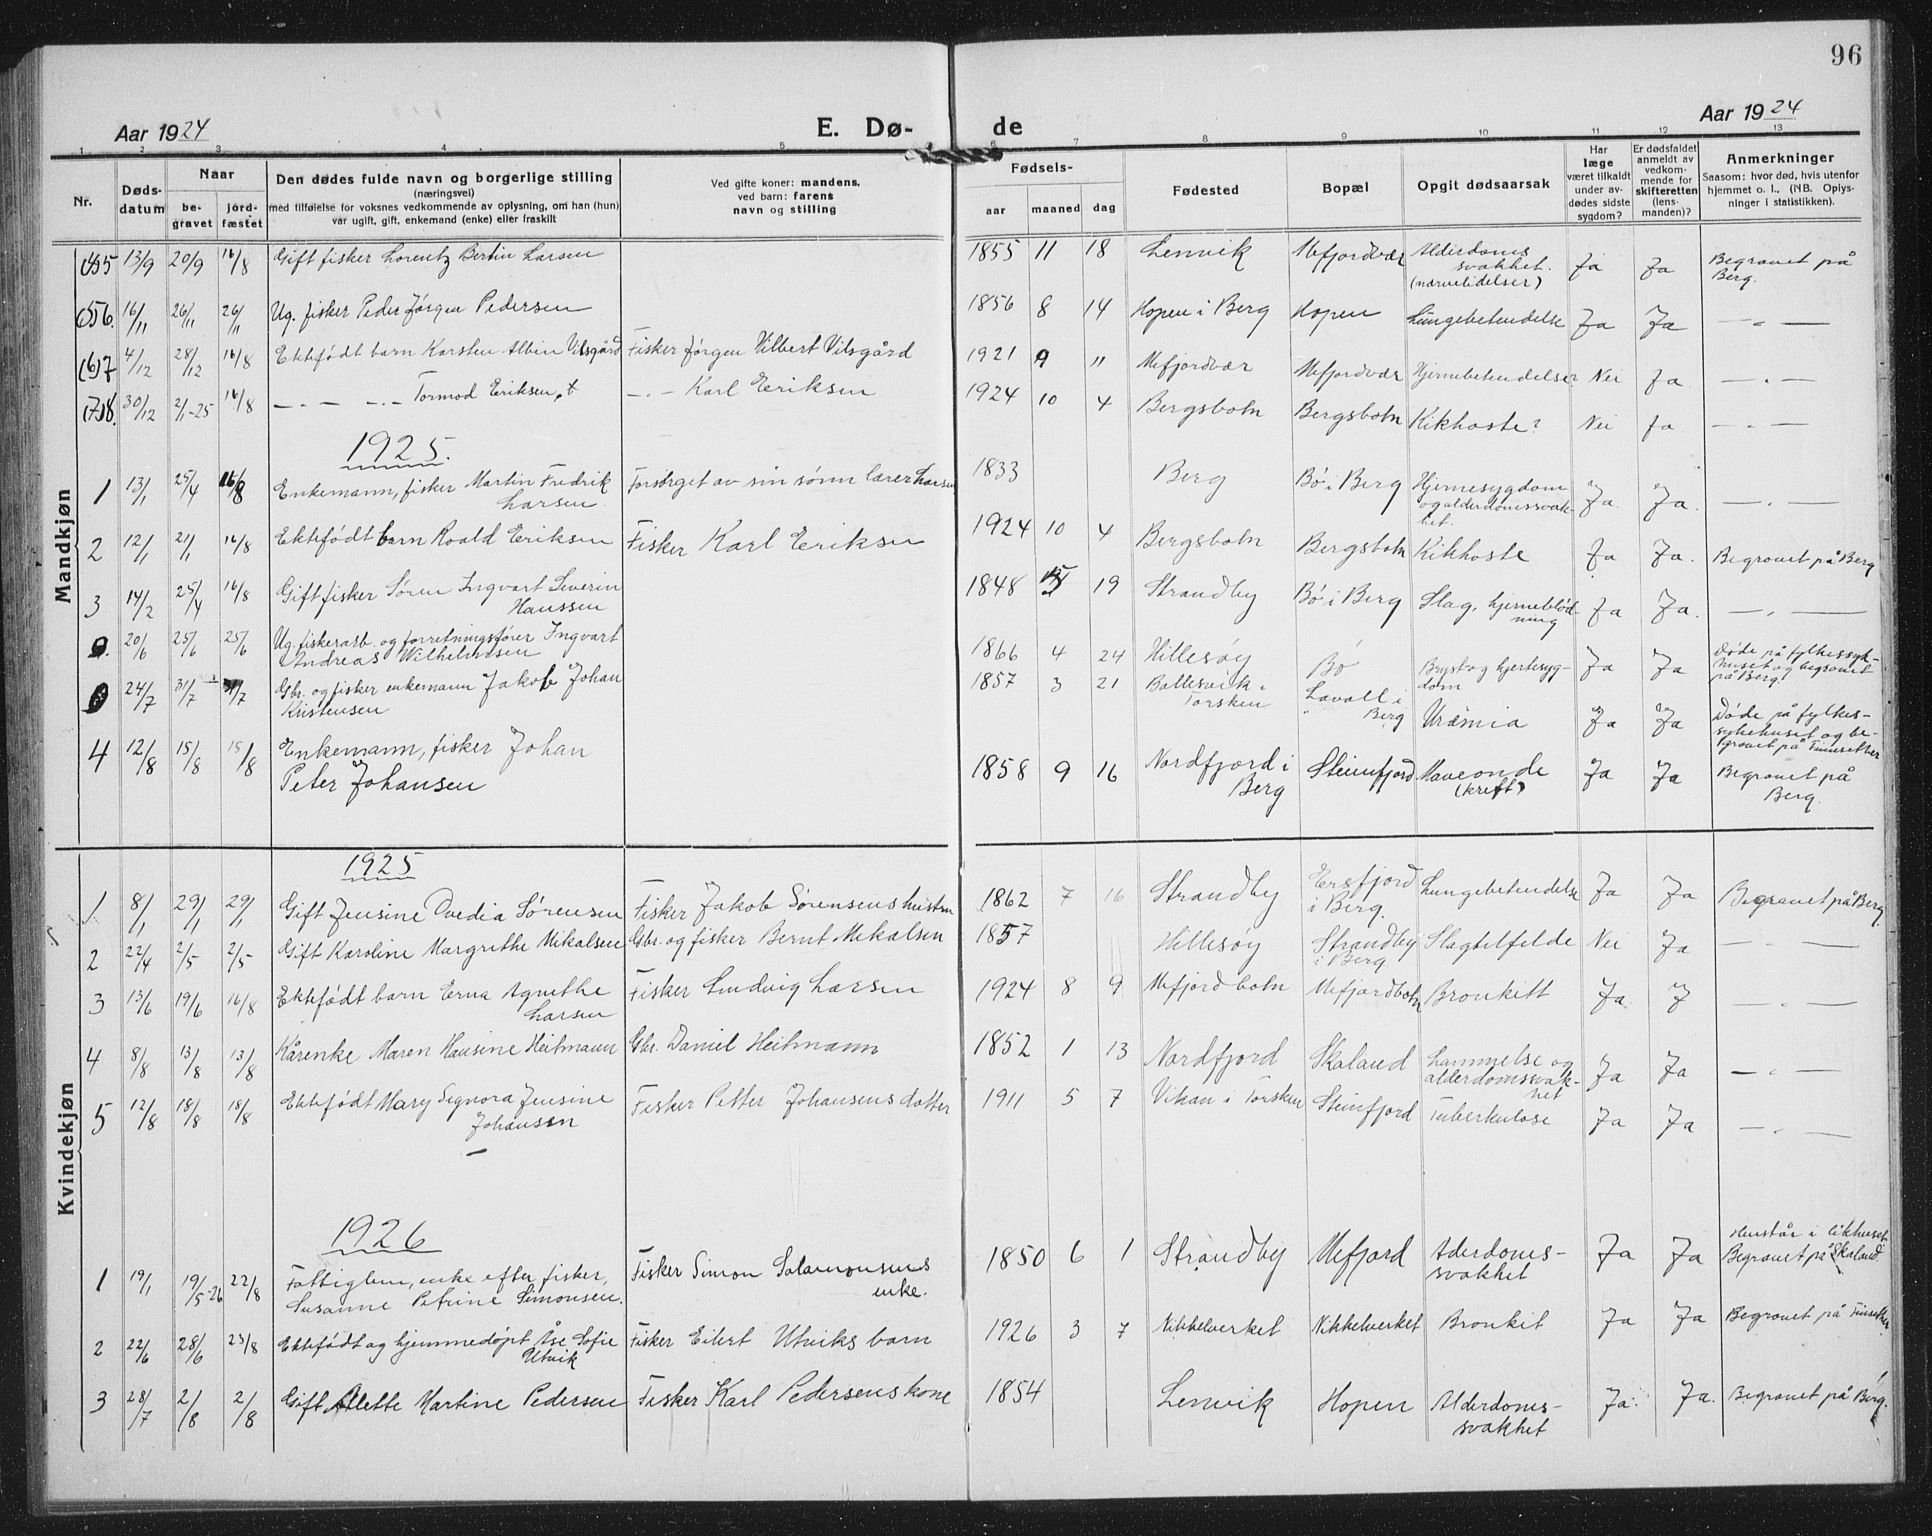 96
Aar 1924
E. Dø-
de
Aar 1924
1 2 3 4 5 6 7 8 9 10 11 12 13
Nr.
Døds-
datum
Naar
be-
gravet
jord-
fæstet
Den dødes fulde navn og borgerlige stilling
(næringsvei)
med tilføielse for voksnes vedkommende av oplysning, om han (hun)
var ugift, gift, enkemand (enke) eller fraskilt
Ved gifte koner: mandens,
ved barn: farens
navn og stilling
Fødsels-
aar maaned dag
Fødested
Bopæl
Opgit dødsaarsak
Har
læge
været tilkaldt
under av-
dødes sidste
sygdom?
Er dødsfaldet
anmeldt av
vedkom-
mende for
skifteretten
(lens-
manden)?
Anmerkninger
Saasom: hvor død, hvis utenfor
hjemmet o. l., (NB. Oplys-
ninger i statistikken).
Mandkjøn
(4)5 13/9 20/9 16/8 Gift fisker Lorentz Bertin Larsen 1855 11 18 Lenvik Mefjordvær Alderdoms
svakhet.
(nervelidelser) Ja Ja Begravet på
Berg.
(5)6. 16/11 26/11 26/11 Ug. fisker Peder Jørgen Pedersen 1856 8 14 Hopen i Berg Hopen Lungebetendelse Ja Ja — " —
(6)7 4/12 28/12 16/8 Ektefødt barn Karsten Albin Vilsgård Fisker Jørgen Vilbert Vilsgård 1921 9 11 Mefjordvær Mefjordvær Hjernebetendelse? Nei Ja. — " —
(7)8. 30/12 2/1-25 16/8 — " — — " — Tormod Eriksen, t — " — Karl Eriksen 1924 10 4 Bergsbotn Bergsbotn Kikhoste? Nei Ja. — " —
1925.
1 13/1 25/4 16/8 Enkemann, fisker Martin Fredrik
Larsen. Forsørget av sin sønn lærer Larsen 1833 Berg Bø i Berg Hjernesygdom
og alderdomssvak-
het. Ja. Ja. — " —
2 12/1 21/1 16/8 Ektefødt barn Roald Eriksen Fisker Karl Eriksen 1924 10 4 Bergsbotn Bergsbotn Kikhoste Ja Ja. Begravet på Berg
3 14/2 25/4 16/8 Gift fisker Søren Ingvart Severin
Hanssen 1848 5 19 Strandby Bø i Berg Slag, hjerneblød-
ning Ja Ja. — " —
20/6 25/6 25/6 Ug. fiskerarb. og forretningsfører Ingvart
Andreas Wilhelmsen 1866 4 24 Hillesøy Bø Bryst og hjertesyg-
dom Ja Ja Døde på fylkessyk-
huset og begravet
på Berg.
24/7 31/7 31/7 Gbr. og fisker enkemann Jakob Johan
Kristensen 1857 3 21 Ballesvik i
Torsken Lavoll i
Berg Urämia Ja Ja Døde på fylkes-
sykehuset og be-
gravet på Finsæter
4 12/8 15/8 15/8 Enkemann, fisker Johan
Peter Johansen 1858 9 16 Nordfjord i
Berg Steinfjord Maveonde
(kreft) Ja Ja Begravet på
Berg.
Kvindekjøn
1925
1 8/1 29/1 29/1 Gift Jensine Ovedia Sørensen Fisker Jakob Sørensens hustru 1862 7 16 Strandby Ersfjord
i Berg. Lungebetendelse Ja Ja Begravet på Berg.
2 22/4 2/5 2/5 Gift Karoline Margrethe Mikalsen Gbr. og fisker Bernt Mikalsen 1857 Hillesøy Strandby
i Berg. Slagtilfelde Nei Ja — " —
3 13/6 19/6 16/8 Ektefødt barn Erna Agnethe
Larsen Fisker Ludvig Larsen 1924 8 9 Mefjordbotn Mefjordbotn Bronkitt Ja. J — " —
4 8/8 13/8 13/8 Kårenke Maren Hansine Heitmann Gbr. Daniel Heitmann 1852 1 13 Nordfjord Skaland Lammelse og
alderdomssvak-
het Ja Ja — " —
5 12/8 18/8 18/8 Ektefødt Mary Signora Jensine
Johansen Fisker Petter Johansens datter 1911 5 7 Vikan i Torsken Steinfjord Tuberkulose Ja Ja — " —
1926
1 19/1 19/5-26 22/8 Fattiglem, enke efter fisker,
Susanne Petrine Simonsen. Fisker Simon Salamonsens
enke. 1850 6 1 Strandby Mefjord Aderdoms-
svakhet Ja Ja Henstår i likhuset.
Begravet på Skaland.
2 22/6 28/6 23/8 Ektefødt og hjemmedøpt Åse Sofie
Utvik Fisker Eilert Utviks barn 1926 3 7 Nikkelverket Nikkelverket Bronkit Ja Ja Begravet på Finsæter
3 28/7 2/8 2/8 Gift Alette Martine Pedersen Fisker Karl Pedersens kone 1854 Lenvik Hopen Alderdoms-
svakhet Ja. Ja. Begravet på Berg.